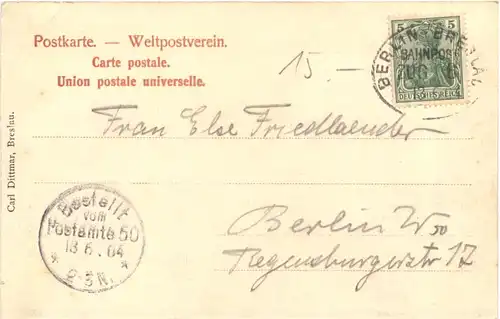 Postkarte. — Weltpostverein.
Carte postale.
Union postale universelle.
15.—
5 5
BERLIN BRESLAU
BAHNPOST
ZUG
DEUTSCHES REICH
Frau Else Friedlaender
Carl Dittmar, Breslau.
Bestellt
vom
Postamte 50
13 6. 04
* 2-3 N. *
Berlin W 50
Regensburgerstr 17